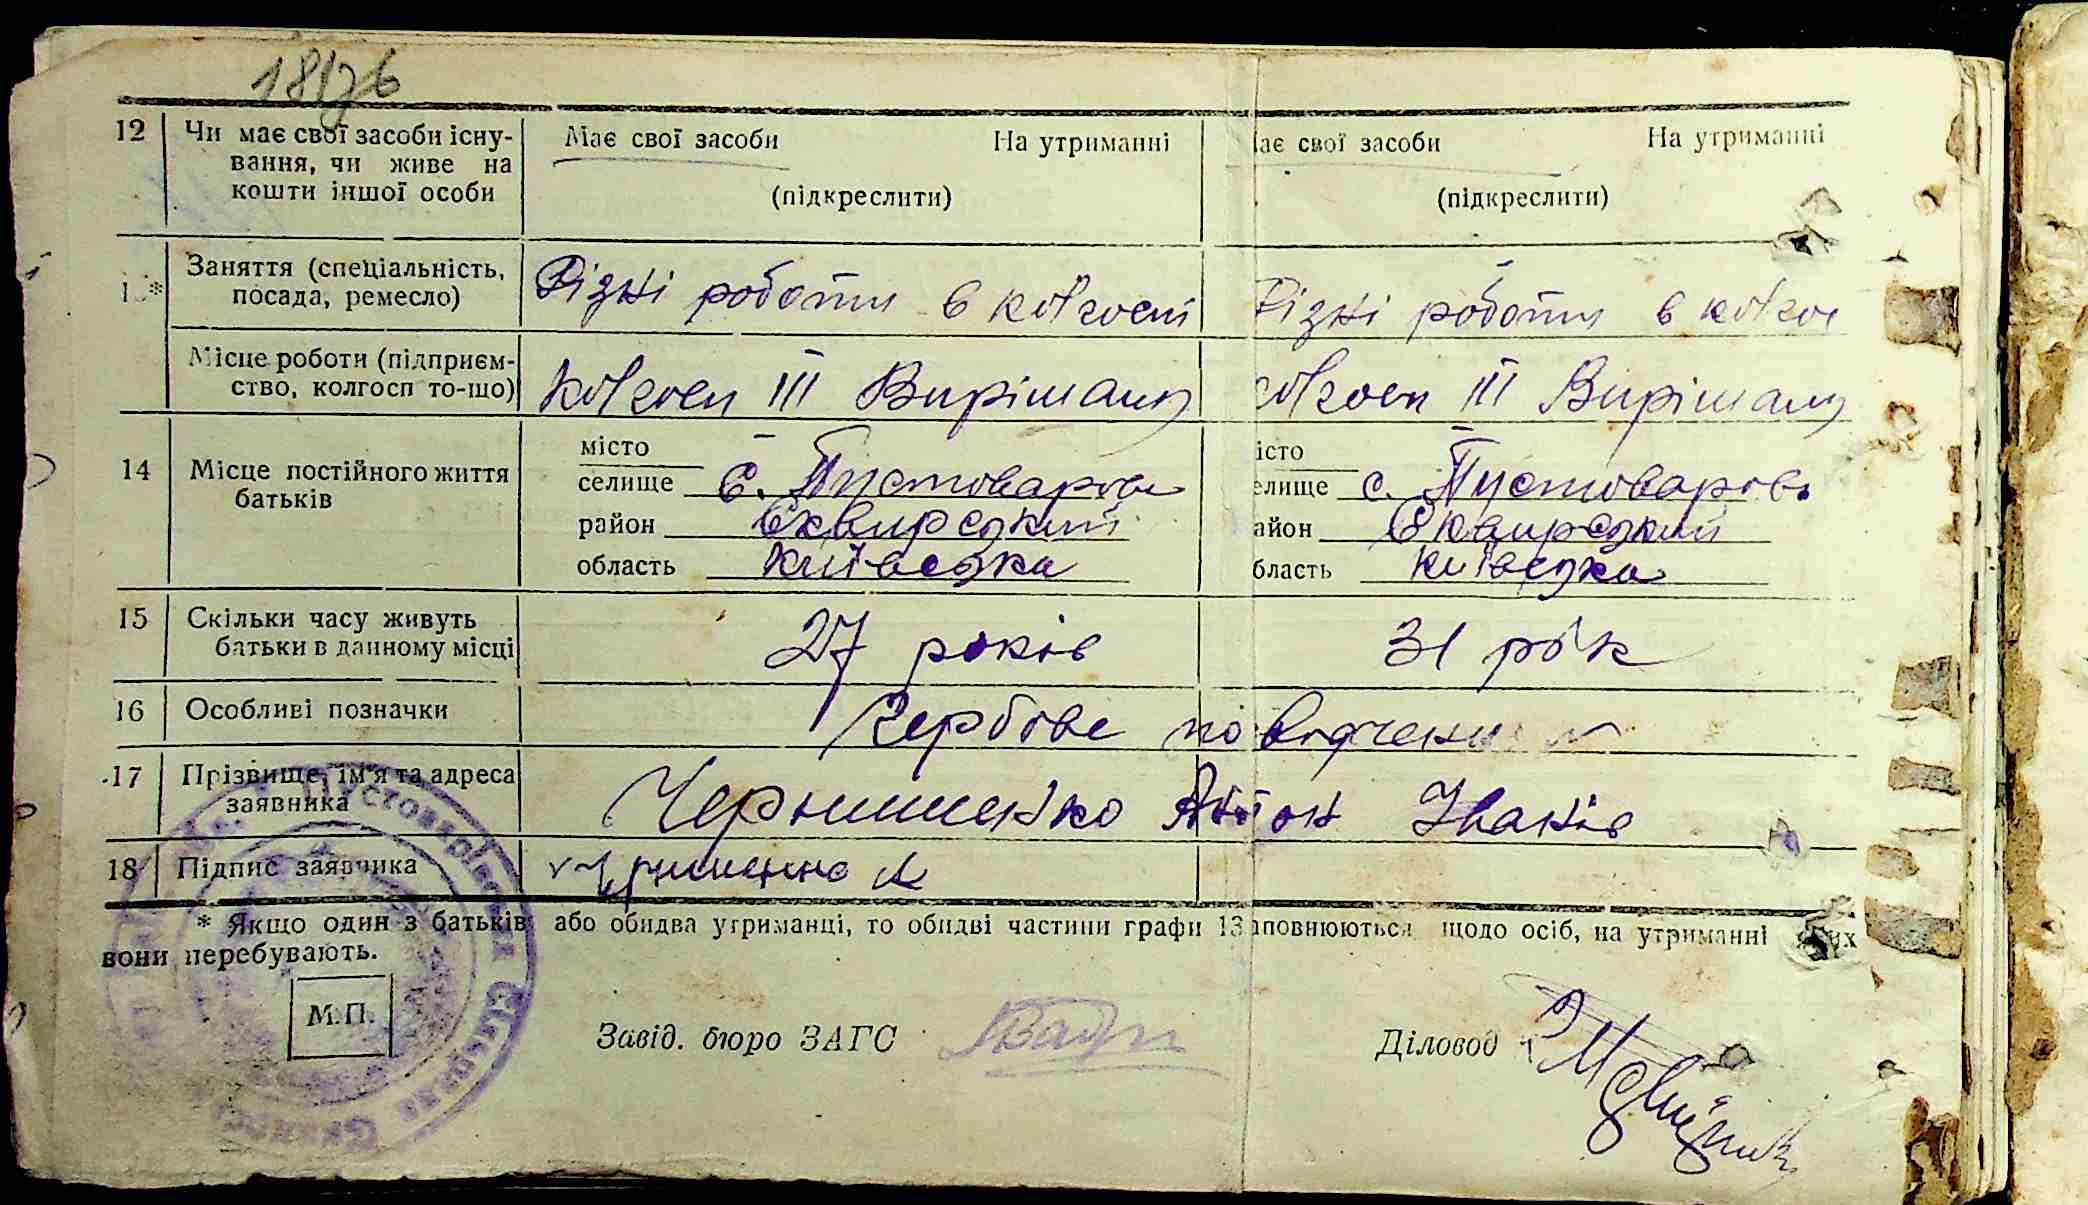 12 Чи має свої засоби існу- Має свої засоби На утриманні ає свої засоби На утриманні
вання, чи живе на
кошти іншої особи (підкреслити) (підкреслити)
Заняття (спеціальність, Різні роботи в колгоспі Різні роботи в колгос
посада, ремесло)
Місце роботи (підприєм- колгосп ІІІ Вирішальн олгосп ІІІ Вирішальн
ство, колгосп то-що)
місто істо
14 Місце постійного життя селище с. Пустоварова елище с. Пустоварова
батьків район Сквирський айон Сквирський
область Київська бласть Київська
15 Скільки часу живуть 27 років 31 рік
батьки в данному місці
16 Особливі позначки Гербове
17 Прізвище, ім'я та адреса Чернишенко Антон Іванів
заявника
18 Підпис заявника
* Якщо один з батьків або обидва утриманці, то обидві частини графи 13 аповнюються щодо осіб, на утриманні яких
вони перебувають.
М.П. Завід. бюро ЗАГС Діловод